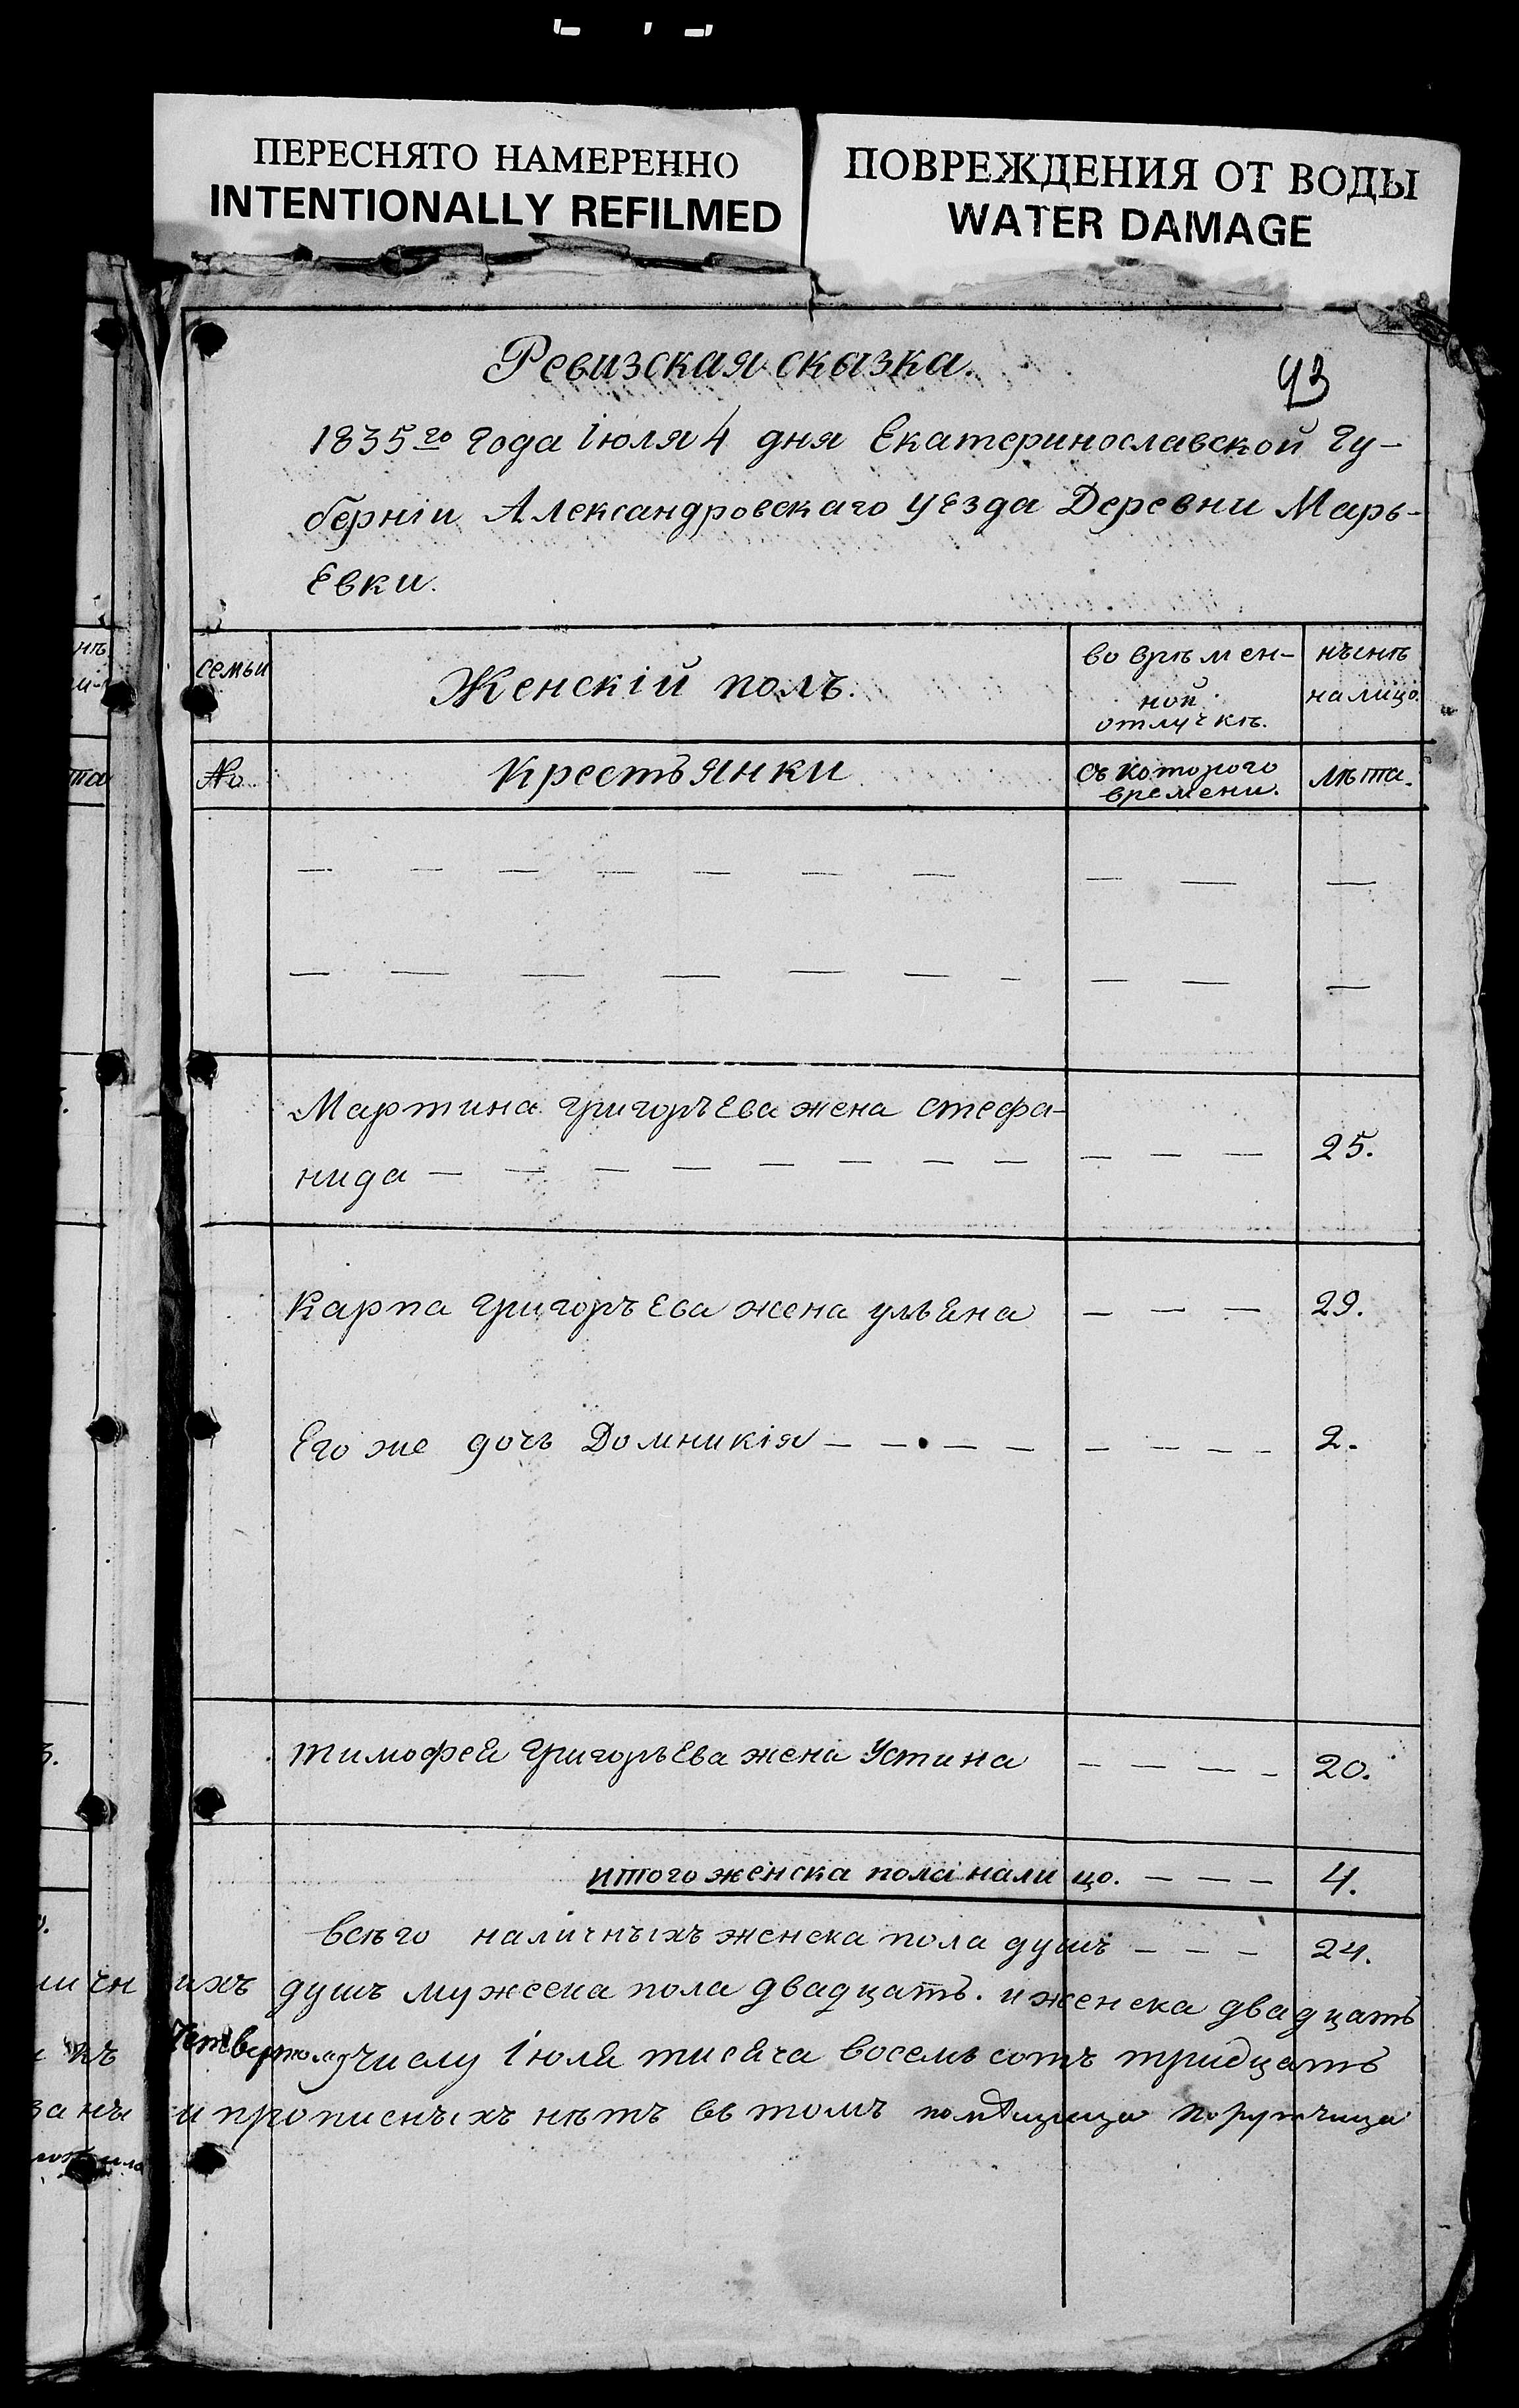 ПЕРЕСНЯТО НАМЕРЕННО
INTENTIONALLY REFILMED
ПОВРЕЖДЕНИЯ ОТ ВОДЫ
WATER DAMAGE
Ревизская сказка.
43
1835го года Iюля 4 дня Екатеринославской Гу-
бернiи Александровскаго уезда Деревни Марь-
евки.
семьи
Женскiй полъ.
во врѣмен-
ной
отлучкѣ.
нынѣ
налицо.
№
Крестьянки
съ которого
времени.
лѣта.
— — — — — — — — — —
— — — — — — — — — —
Мартина Григорьева жена Стефа-
нида — — — — — — — — — — — 25.
Карпа Григорьева жена ульяна — — — 29.
Его же дочь Домникiя — — — — — — — — 2.
Тимофея Григорьева жена Устина — — — — 20.
итого женска пола налицо. — — — 4.
всѣго наличныхъ женска пола душъ — — — 24.
ихъ душъ мужеска пола двадцать. и женска двадцать
Четвертому числу Iюля тисяча восемьсотъ тридцать
и прописныхъ нѣтъ въ томъ помѣщица Поручица